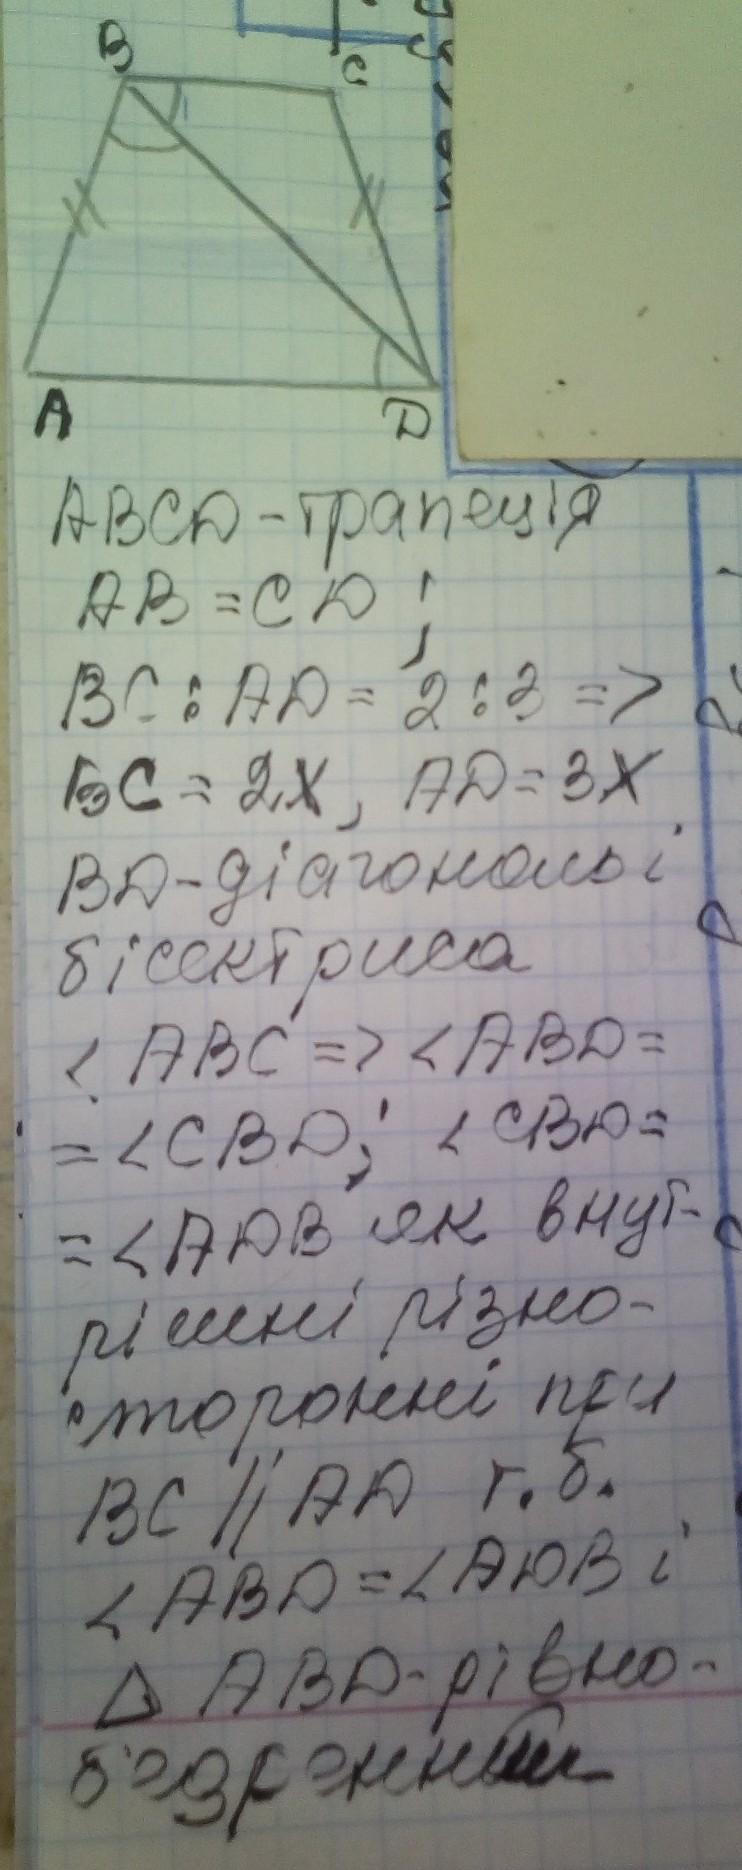 B
C
A
D
ABCD-трапеція
AB = CD ;
BC : AD = 2 : 3 =>
BC = 2x, AD = 3x
BD-діагональ і
бісектриса
< ABC => < ABD =
= < CBD; < CBD =
= < ADB як внут-
рішні різно-
сторонні при
BC || AD т.б.
< ABD = < ADB і
Δ ABD-рівно-
бедренний